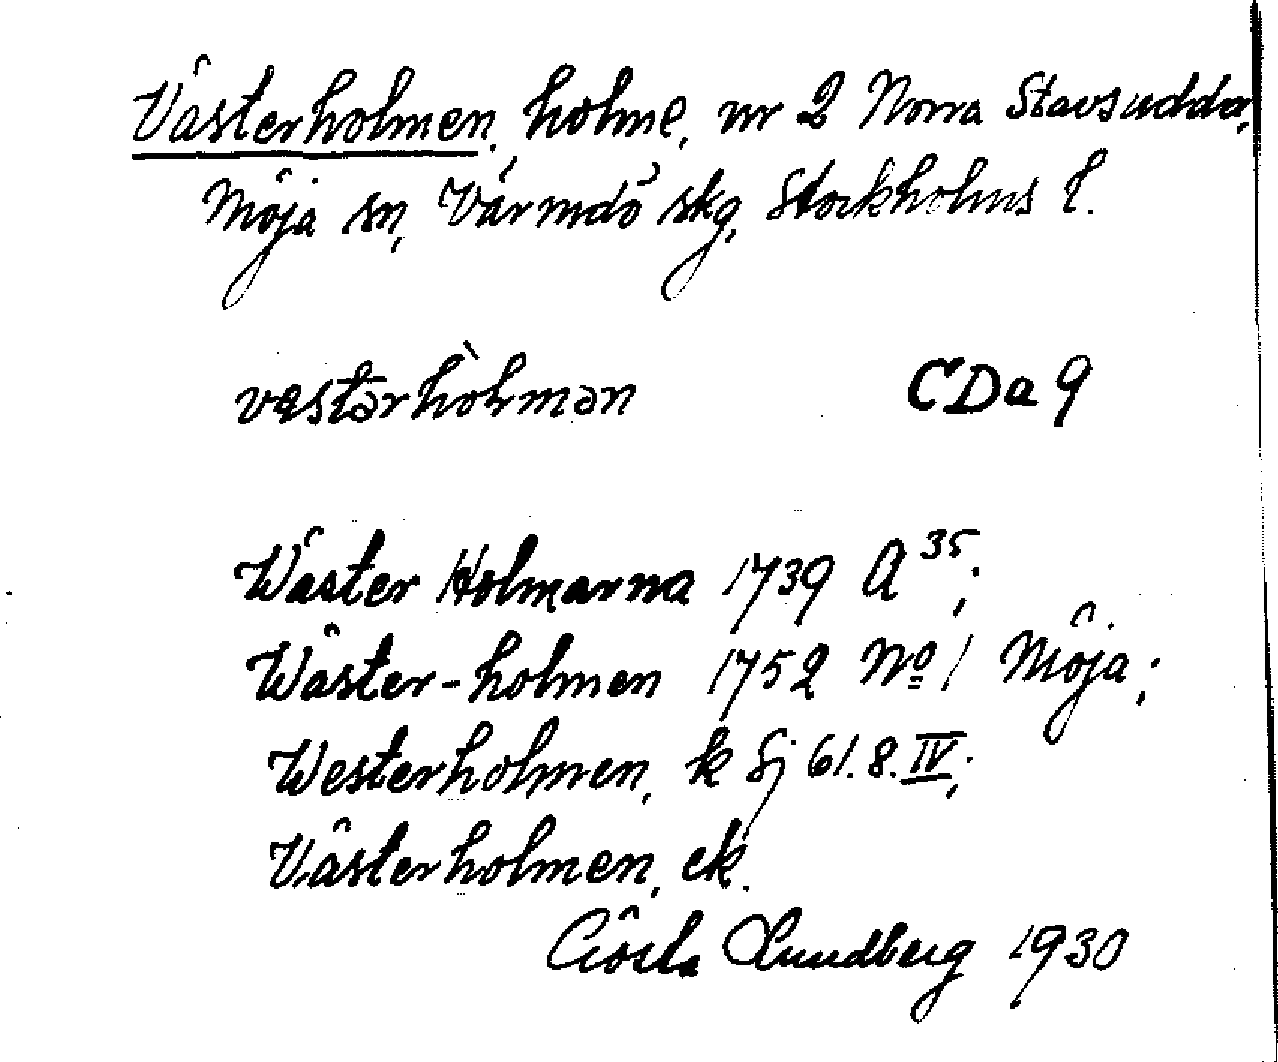 Västerholmen, holme, nr 2 Norra Stavsudda,
Möja sn, Värmdö skg, Stockholms l.
vestərhòlmən CDa 9
Wäster Holmarna 1739 A 35;
Wäster-holmen 1752 No 1 Möja;
Westerholmen, k Sj 61. 8. IV;
Västerholmen, ek.
Gösta Lundberg 1930